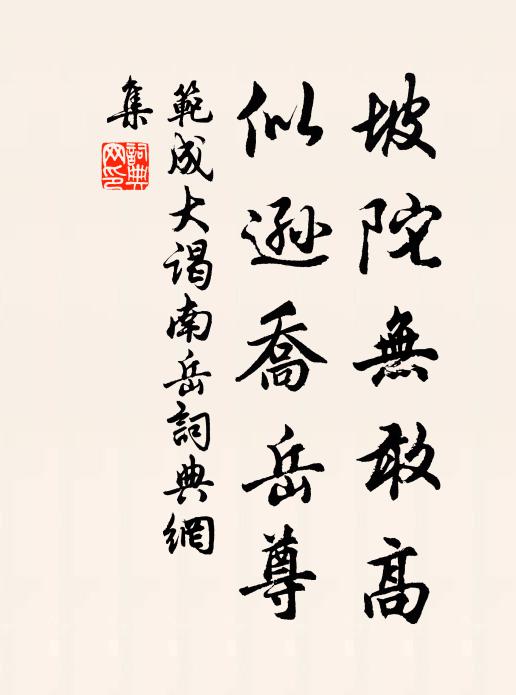 坡陀無敢高
似遜喬岳尊
範成大謁南岳詞典網
集
詞典網印